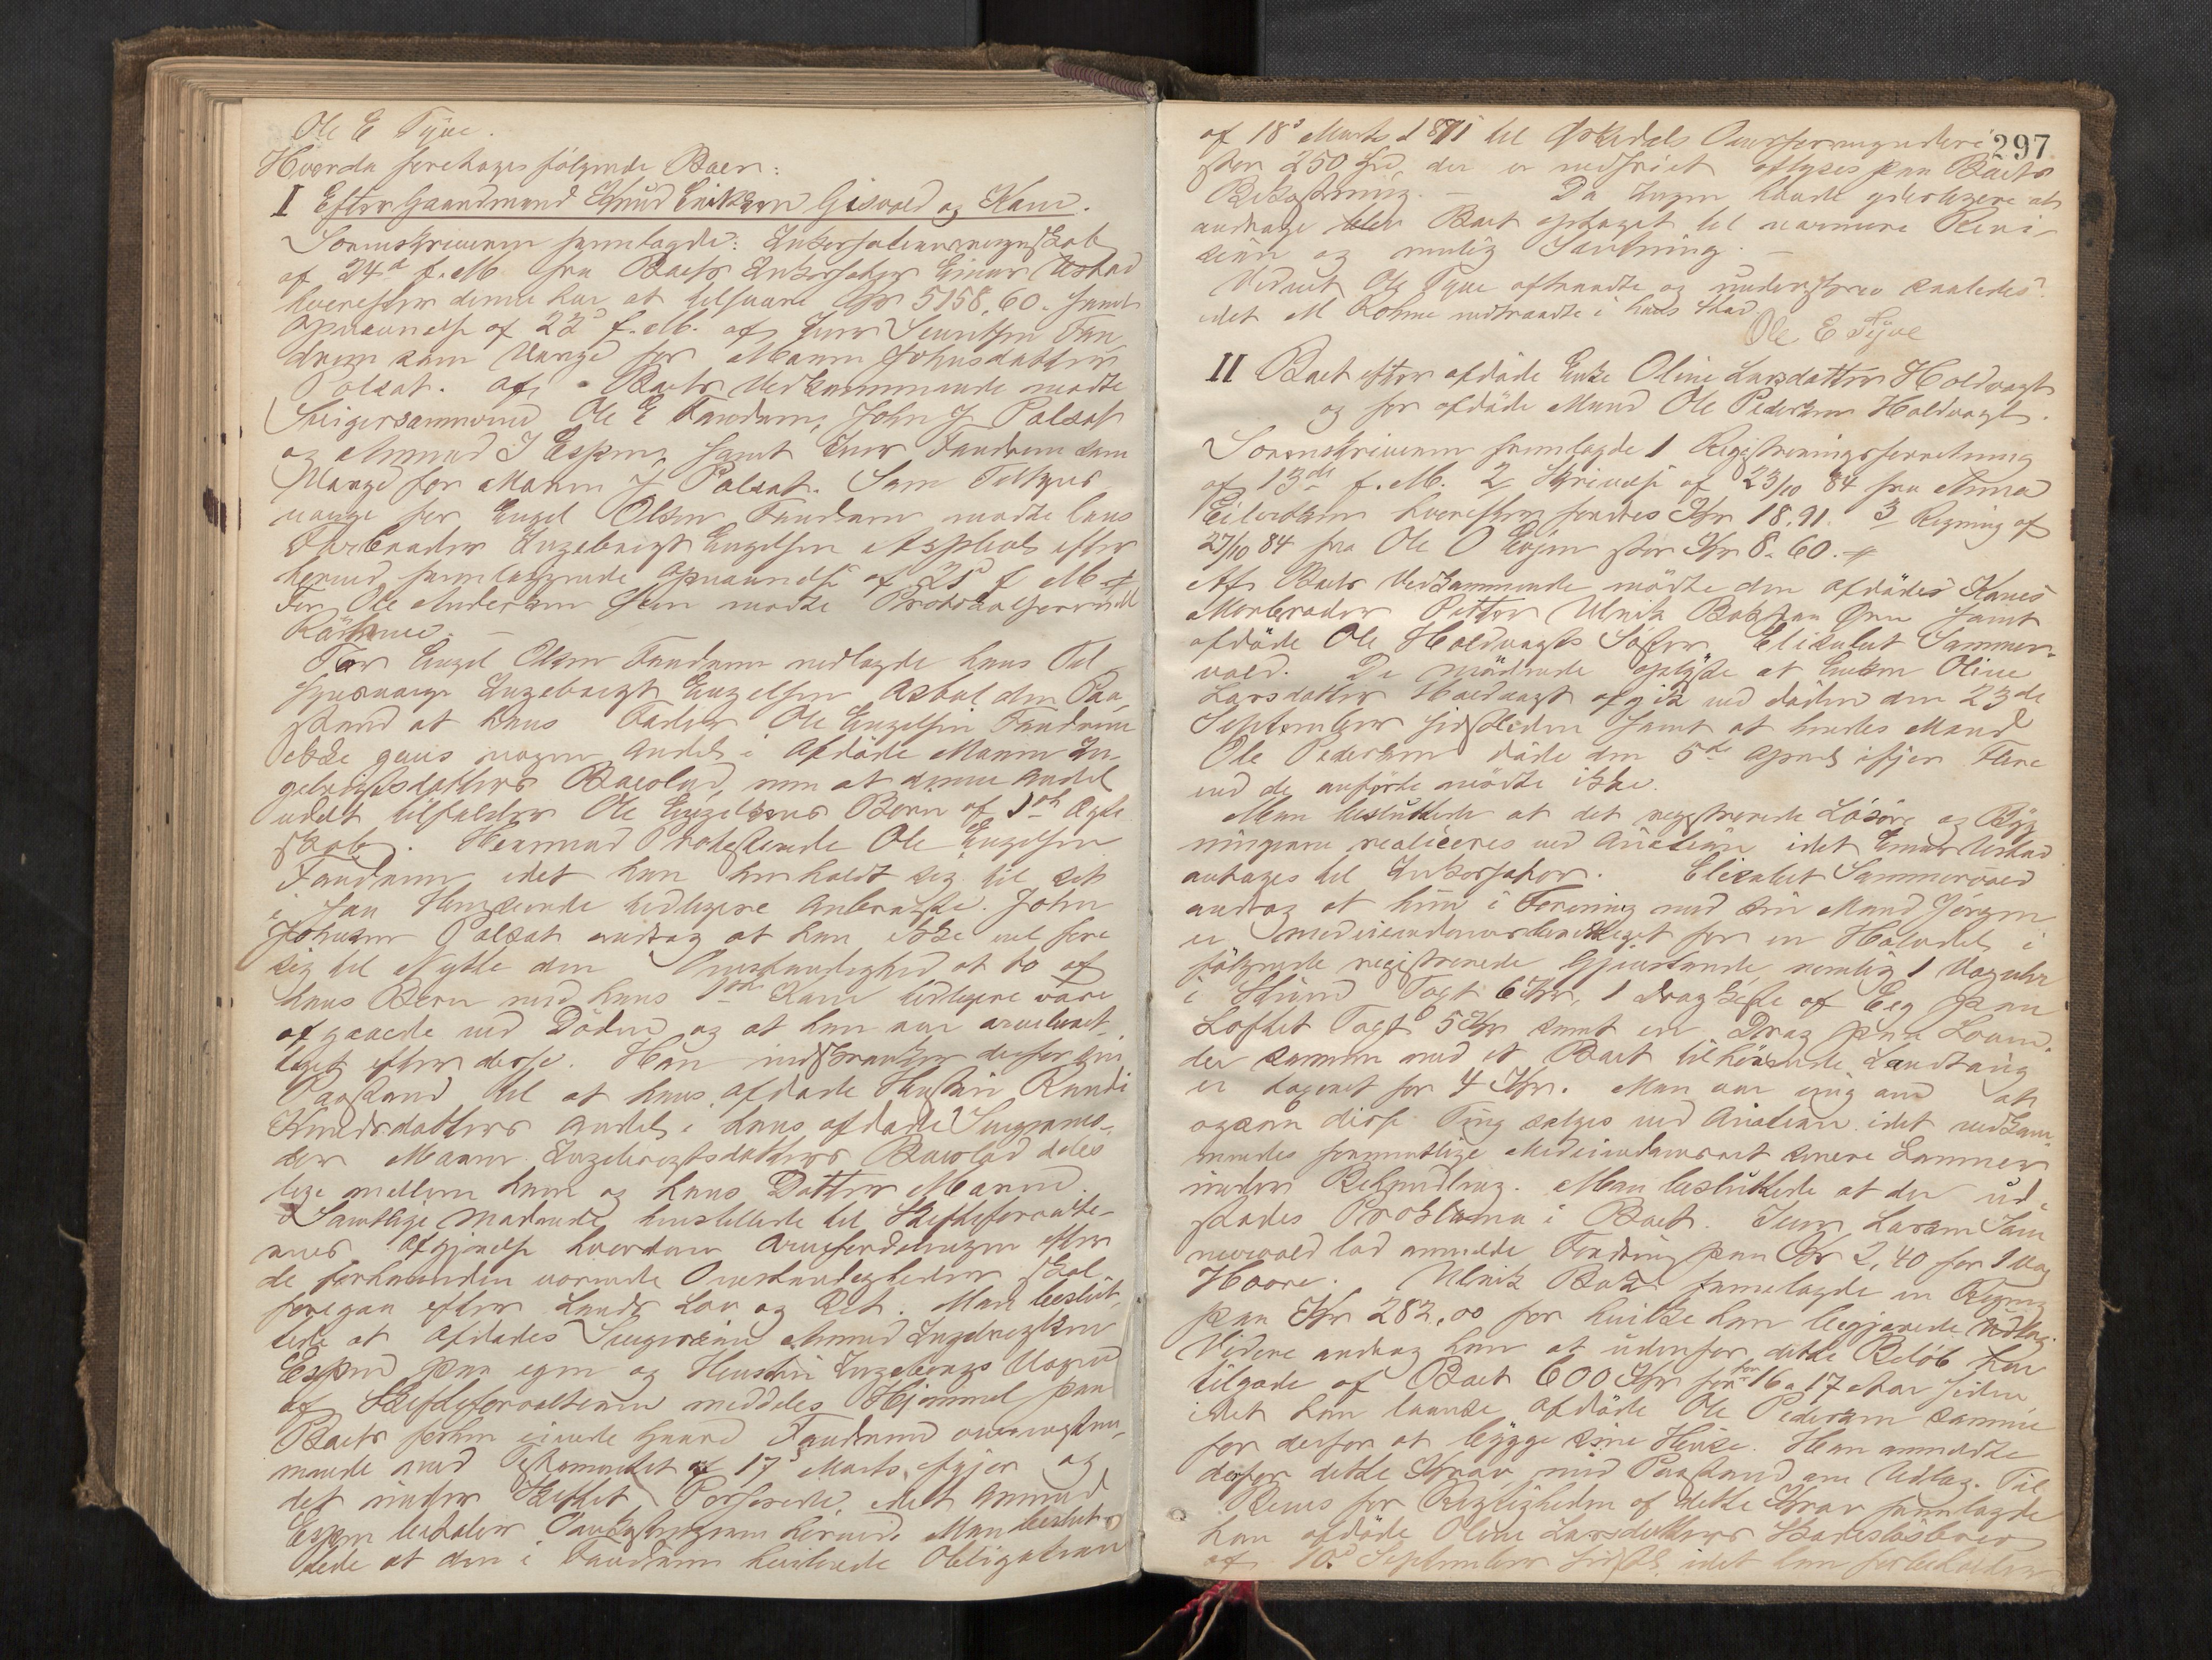 Ole E Tyve.
Hvorda foretages følgende Boer:
I Efter Gaardmand Knud Eriksen Gisvold og Kone.
Sorenskriveren fremlagde: Inkassationsregnskab
af 24de f. M. fra Boets Inkassator Einar Ustad
hvorefter denne har at tilsvare Kr 5158,60. samt
Opnævnelse af 22de f. M. af Iver Sivertsen Fan-
drem som Værge for Maren Johnsdatter
Polsat. Af Boets Vedkommende mødte
Svigersønnerne Ole E Fandrem, John J Polsat
og Amund I Espen, samt Iver Fandrem som
Værge for Maren J Polsat. Som Tilsyns
værge for Engel Olsen Fandrem mødte hans
Farbroder Ingebrigt Engelsen Asphol efter
herved fremlæggende Opnævnelse af 25de f M
For Ole Andersen mødte

For Engel Olsen Fandrem nedlagde hans Til
synsværge Ingebrigt Engelsen Asbøl den Paa-
stand at hans Fader Ole Engelsen Fandrem
ikke gives nogen Andel i Afdøde Maren In-
gebrigtsdatters Boeslod, men at denne Andel
udelt tilfalder Ole Engelsens Børn af 1ste Ægte
skab. Hermod Protesterede Ole Engelsen
Fandrem idet han henholdt sig til det
i saa Henseende tidligere Anbragte. John
Johnsen Polsat androg at han ikke vil føre
sig til Nytte den Omstændighed at to af
hans Børn med hans 1ste Kone tidligere vare
afgaaede ved Døden og at han var arveberet
tiget efter disse. Han indskrænker derfor sin
Paastand til at hans afdøde Hustru Randi
Knudsdatters Andel i hans afdøde Svigermo-
der Maren Ingebrigtsdatters Boeslod deles
lige mellem ham og hans Datter Maren.
Samtlige Mødende henstillede til Skifteforvalte-
rens Afgjørelse hvordan Arvefordelingen efter
de forhaanden værende Omstændigheder skal
foregaa efter Lands Lov og Ret. Man beslut-
tede at Afdødes Svigersøn Amund Ingebrigtsen
Espen paa egen og Hustru Ingeborgs Vegne
af Skifteforvalteren meddeles Hjemmel paa
Boets forhen eiende Gaard Fandrem overensstem-
mende med Testamentet af 17de Marts ifjor og
det under Skiftet Passerede, idet Amund
Espen betaler Omkostningerne herved. Man beslut-
tede at den i Fandrem heftende Obligation
297
af 18de Marts 1871 til Orkedals Overformynderi
stor 250 Spd, der er indfriet aflyses paa Boets
Bekostning. — Da Ingen havde yderligere at
andrage blev Boet optaget til nærmere Revi-
sion og mulig Slutning. —
Vidnet Ole Tyve aftraadte og underskrev saaledes:
idet M Rohme indtraadte i hans Sted.
Ole E Tyve
II Boet efter afdøde Enke Oline Larsdatter Holdvagt
og før afdøde Mand Ole Pedersen Holdvagt.
Sorenskriveren fremlagde 1 Registreringsforretning
af 13de f. M. 2 Skrivelse af 23/10 84 fra Anna
Eilertsen hvorefter fordres Kr 18.91. 3 Regning af
27/10 84 fra Ole O Evjen stor Kr 8.60.
Af Boets Vedkommende mødte den afdødes Kones
Morbroder Petter Ulrik Bak paa Øren samt
afdøde Ole Holdvagts Søster Elisabet Sommer-
vold. De mødende oplyste at Enken Oline
Larsdatter Holdvagt afgik ved døden den 23de
September sidstleden samt at hendes Mand
Ole Pedersen døde den 5te April ifjor. Flere
end de anførte mødte ikke.
Man besluttede at det registrerede Løsøre og Byg
ningerne realiceres ved Auction idet Einar Ustad
antages til Inkassator. Elisabet Sommervold
androg at hun i Forening med sin Mand Jørgen
er medeiendomsberettiget for en Halvdel i
følgende registrerede Gjenstande nemlig 1 Væguhr
i Stuen Taxt 6 Kr, 1 Dragkiste af Eeg paa
Loftet Taxt 5 Kr samt en Drag paa Loen
der sammen med et Boet tilhørende Landtang
er taxeret for 4 Kr. Man var enig om at
ogsaa disse Ting sælges ved Auction idet vedkom-
mendes formentlige Medeiendomsret senere kommer
under Behandling. Man besluttede at der ud-
stædes Proklama i Boet. Iver Larsen Som
mervold lod anmelde Fordring paa Kr 2,40 for 1 Vog
Hoore. Ulrik Bak fremlagde en Regning
paa Kr 282,00 for hvilke han begjærede Udlæg.
Videre androg han at udenfor dette Beløb har
tilgode af Boet 600 Kr for 16 a 17 Aar siden
idet han laante afdøde Ole Pedersen samme
for derfor at bygge sine Huse. Han anmeldte
derfor dette Krav med Paastand om Udlæg. Til
Bevis for Rigtigheden af dette Krav fremlagde
han afdøde Oline Larsdatters Skadesløsbrev
af 10de September sidstl. idet han forbeholder